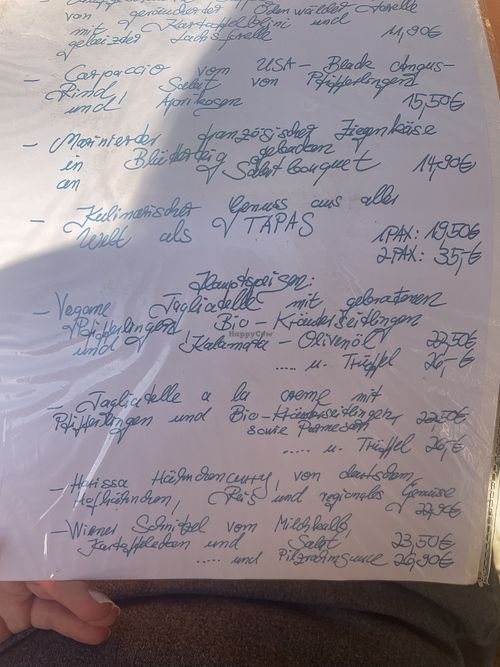 von geräucherter Odenwälder Forelle
mit Kartoffelblini und
gebeizter Lachsforelle 11,90€
- Carpaccio vom USA- Black Angus-
Rind, Salat von Pfifferlingen
und Aprikosen 15,50€
- Marinierter französischer Ziegenkäse
in Blätterteig gebacken
an Salatbouquet 14,90€
- Kulinarischer Genuss aus aller
Welt als TAPAS 1PAX: 19,50€
2PAX: 35,-€
Hauptspeisen:
- Vegane Tagliatelle mit gebratenen
Pfifferlingen, Bio-Kräuterseitlingen
und Kalamata-Olivenöl 22,50€
..... u. Trüffel 26,-€
HappyCow
- Tagliatelle a la creme mit
Pfifferlingen und Bio-Kräuterseitlingen, 22,50€
sowie Parmesan
..... u. Trüffel 26,-€
- Harissa Hähnchencurry, von deutschem
Hofhähnchen, Reis und regionales Gemüse
22,90€
- Wiener Schnitzel vom Milchkalb,
Kartoffelecken und Salat 23,50€
..... und Pilzrahmsauce 26,90€